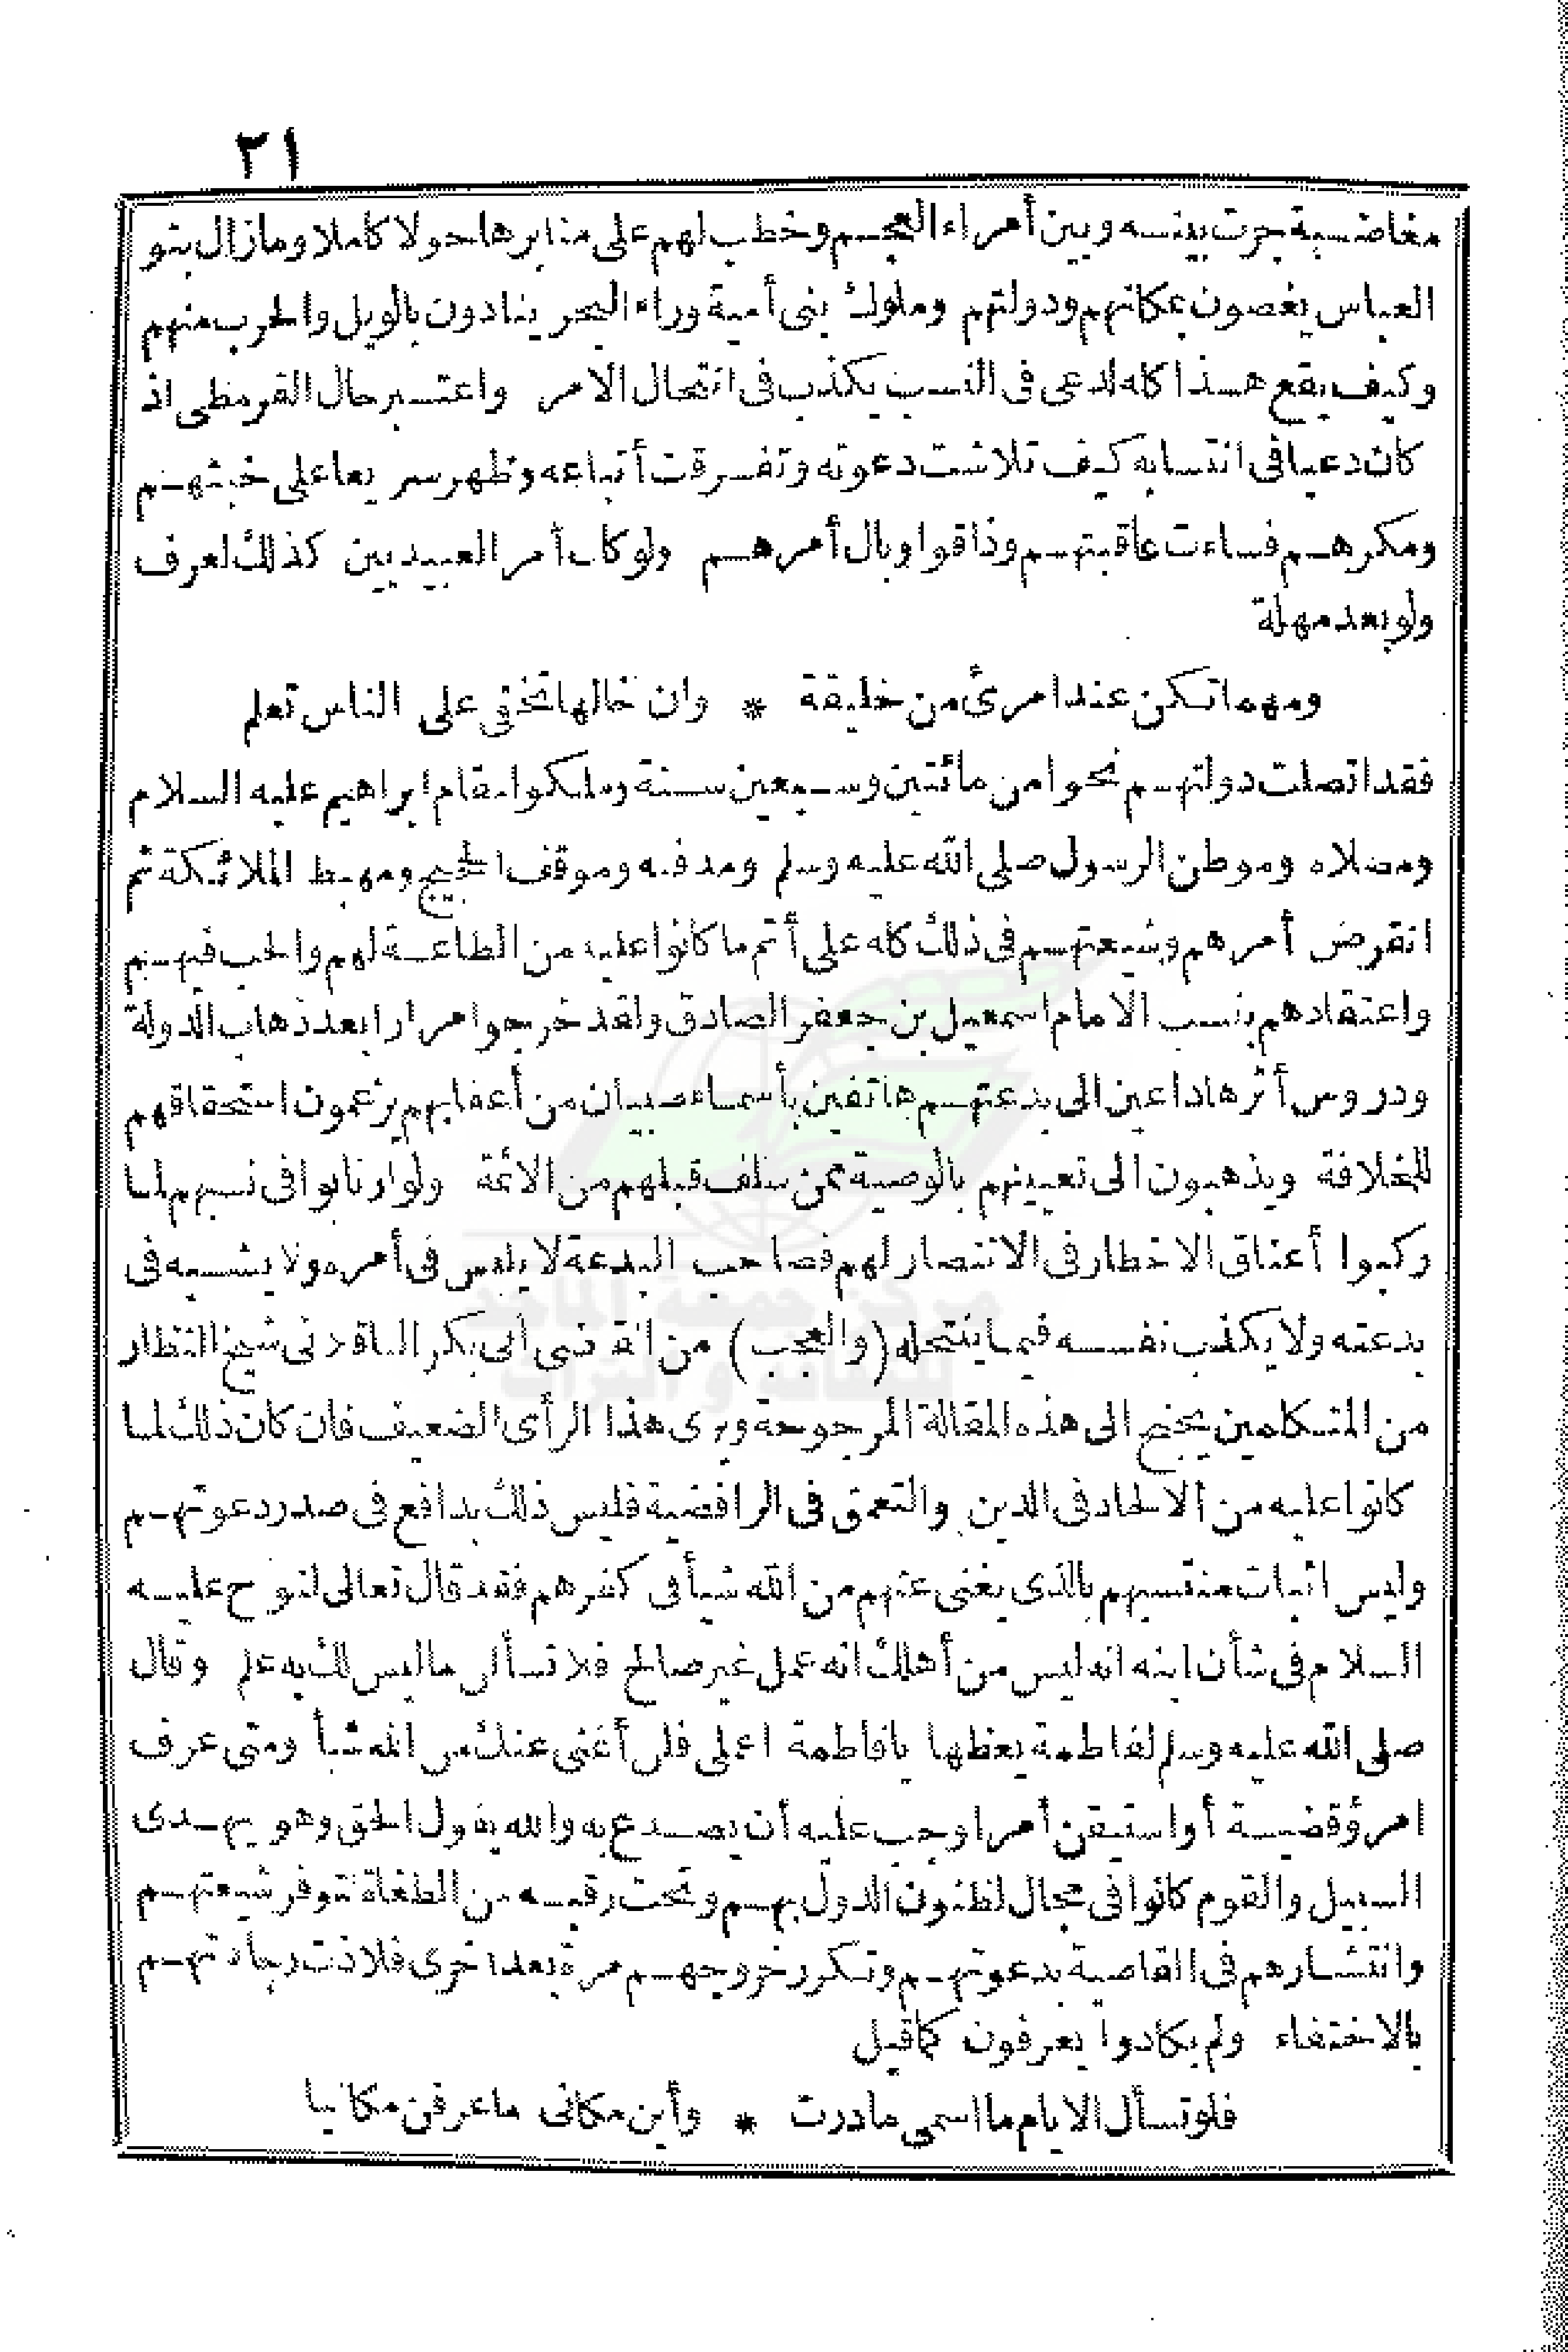 ٢١
مغاضبة جرت بينه وبين أمراء العجم وخطب لهم على منابرها حولا كاملا وما زال بنو
العباس يغصون بمكانهم ودولتهم وملوك بنى أمية وراء البحر ينادون بالويل والحرب منهم
وكيف يقع هذا كله لدعى فى النسب يكذب فى انتحال الامر واعتبر حال القرمطى اذ
كان دعيا فى انتسابه كيف تلاشت دعوته وتفرقت أتباعه وظهر سريعا على خبثهم
ومكرهم فساءت عاقبتهم وذاقوا وبال أمرهم ولو كان أمر العبيديين كذلك لعرف
ولو بعد مهلة
ومهما تكن عند امرئ من خليقة * وان خالها تخفى على الناس تعلم
فقد اتصلت دولتهم نحوا من مائتين وسبعين سنة وملكوا مقام ابراهيم عليه السلام
ومصلاه وموطن الرسول صلى الله عليه وسلم ومدفنه وموقف الحجيج ومهبط الملائكة ثم
انقرض أمرهم وشيعتهم فى ذلك كله على أتم ما كانوا عليه من الطاعة لهم والحب فيهم
واعتقادهم بنسب الامام اسمعيل بن جعفر الصادق ولقد خرجوا مرارا بعد ذهاب الدولة
ودروس أثرها داعين الى بدعتهم هاتفين بأسماء صبيان من أعقابهم يزعمون استحقاقهم
للخلافة ويذهبون الى تعيينهم بالوصية ممن سلف قبلهم من الائمة ولو ارتابوا فى نسبهم لما
ركبوا أعناق الاخطار فى الانتصار لهم فصاحب البدعة لا يلبس فى أمره ولا يشبه فى
بدعته ولا يكذب نفسه فيما ينتحله (والعجب) من القاضى أبى بكر الباقلانى شيخ النظار
من المتكلمين يجنح الى هذه المقالة المرجوحة ويرى هذا الرأى الضعيف فان كان ذلك لما
كانوا عليه من الالحاد فى الدين والتعمق فى الرافضية فليس ذلك بدافع فى صدر دعوتهم
وليس اثبات منتسبهم بالذى يغنى عنهم من الله شيأ فى كفرهم فقد قال تعالى لنوح عليه
السلام فى شأن ابنه انه ليس من أهلك انه عمل غير صالح فلا تسألن ما ليس لك به علم وقال
صلى الله عليه وسلم لفاطمة يعظها يا فاطمة اعملى فلن أغنى عنك من الله شيأ ومتى عرف
امرؤ قضية أو استيقن أمرا وجب عليه أن يصدع به والله يقول الحق وهو يهدى
السبيل والقوم كانوا فى مجال لظنون الدول بهم وتحت رقبة من الطغاة لتوفر شيعتهم
وانتشارهم فى القاصية بدعوتهم وتكرر خروجهم مرة بعد اخرى فلاذت رجالاتهم
بالاختفاء ولم يكادوا يعرفون كما قيل
فلو تسأل الايام ما اسمى ما درت * وأين مكانى ما عرفن مكانيا
مركز جمعة الماجد
للثقافة و التراث